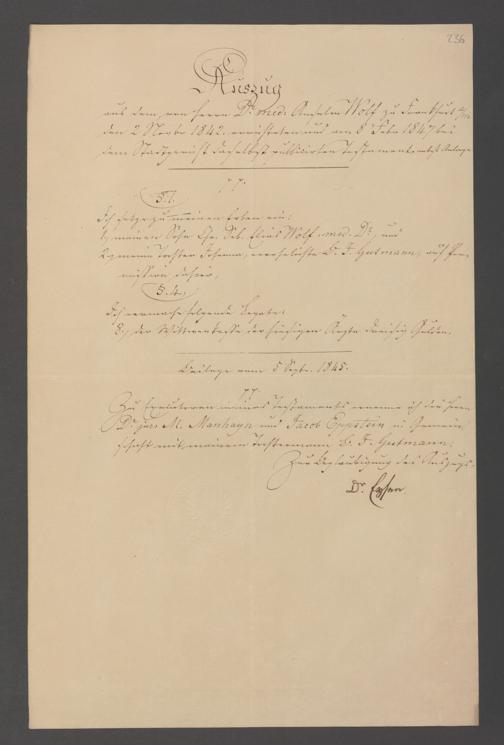 236
Auszug
aus dem, von Herrn Dr. med. Anselm Wolf zu Frankfurt a/M
den 2 Novbr 1842. errichteten und am 8 Febr 1847 bei
dem Stadtgericht daselbst publicirten Testament, nebst Anlage
p. p.
§. 1.
Ich setze zu meinen Erben ein:
1, meinen Sohn Elias Wolf, med. Dr, und
2, meine Tochter verehelichte Gutmann, auf
mission dahier,
§. 4,
Ich vermache folgende Legate:
8., der Wittwenkasse der hiesigen Ärzte dreißig Gulden.
Beilage vom 5 Septr. 1845.
p. p.
Zu Executoren meines Testaments ernenne ich die Herrn
Dr. jur. M. Manhayn und Jacob Eppstein in Gemein-
schaft mit meinem Tochtermann Gutmann.
Zur Beglaubigung des Auszugs.
Dr.